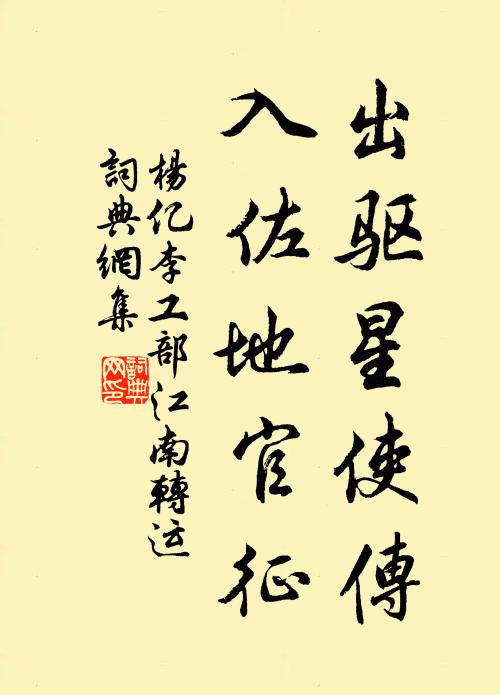 出驱星使傳
入佐地官征
楊亿李工部江南轉运
詞典網集
詞典網印